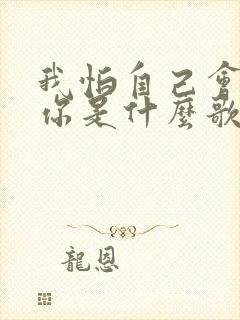 我怕自己會
你是什麼歌
龍恩